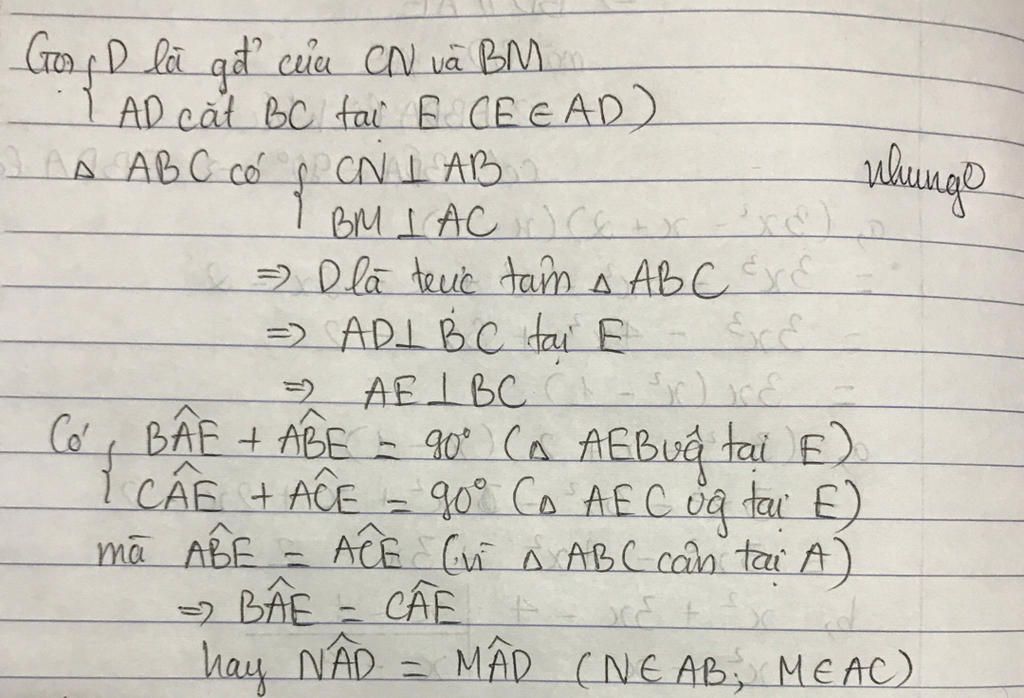 Gọi { D là gđ' của CN và BM
AD cắt BC tại E (E ∈ AD)
Δ ABC có { CN ⊥ AB
nhung
BM ⊥ AC
=> D là trực tâm Δ ABC
=> AD ⊥ BC tại E
=> AE ⊥ BC
Có { BÂE + AB̂E = 90° (Δ AEB vg tại E)
CÂE + AĈE = 90° (Δ AEC vg tại E)
mà AB̂E = AĈE (vì Δ ABC cân tại A)
=> BÂE = CÂE
hay NÂD = MÂD (N ∈ AB; M ∈ AC)